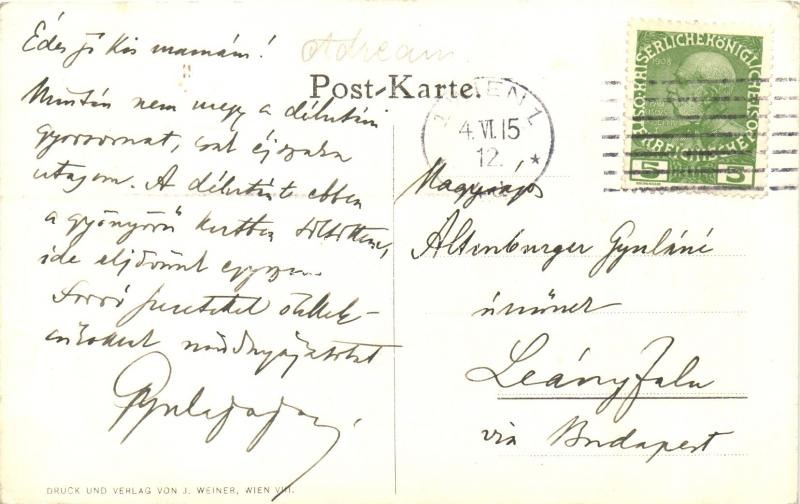 Édes jó kis mamám!
Adream
Post-Karte.
Miután nem megy a délutáni
gyorsvonat, csak éjszaka
utazom. A délutánt ebben
a gyönyörű kertben töltöttem,
ide eljövünk egyszer.
Forró szeretettel ölel
mindnyájatokat
Gyula
WIEN 1
4. VI. 15
12. *
KAISERLICHE KÖNIGLICHE
ÖSTERREICHISCHE POST
1908
5 5
Magyarország
Altenburger Gyuláné
úrnőnek
Leányfalu
via Budapest
DRUCK UND VERLAG VON J. WEINER, WIEN VIII.